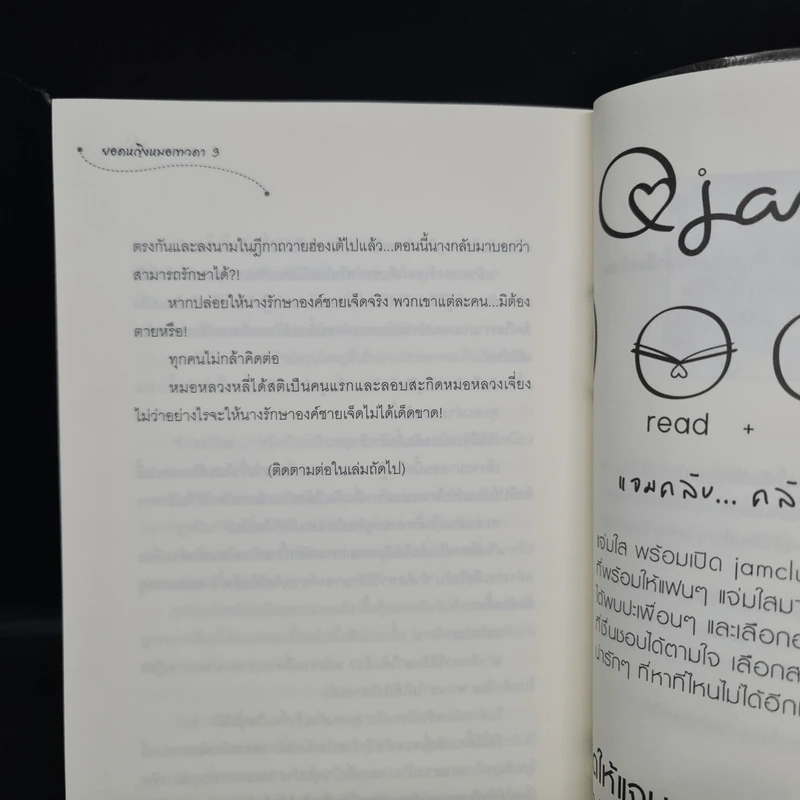 ยอดหญิงหมอเทวดา 3
ตรงกันและลงนามในฎีกาถวายฮ่องเต้ไปแล้ว...ตอนนี้นางกลับมาบอกว่า
สามารถรักษาได้?!
หากปล่อยให้นางรักษาองค์ชายเจ็ดจริง พวกเขาแต่ละคน...มิต้อง
ตายหรือ!
ทุกคนไม่กล้าคิดต่อ
หมอหลวงหลี่ได้สติเป็นคนแรกและลอบสะกิดหมอหลวงเจี่ยง
ไม่ว่าอย่างไรจะให้นางรักษาองค์ชายเจ็ดไม่ได้เด็ดขาด!
(ติดตามต่อในเล่มถัดไป)
read +
แจมคลับ...
แจ่มใส พร้อมเปิด
ที่พร้อมให้แฟนๆ แจ่มใสมา
ได้พบปะเพื่อนๆ และเลือก
ที่ชื่นชอบได้ตามใจ เลือก
น่ารักๆ ที่หาที่ไหนไม่ได้อีก